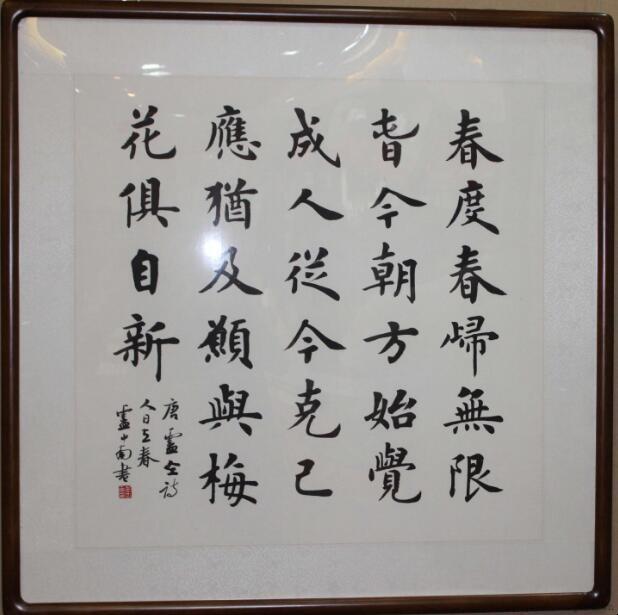 春度春歸無限
旾今朝方始覺
成人從今克己
應猶及願與梅
花俱自新
唐盧仝詩
人日立春
盧中南書